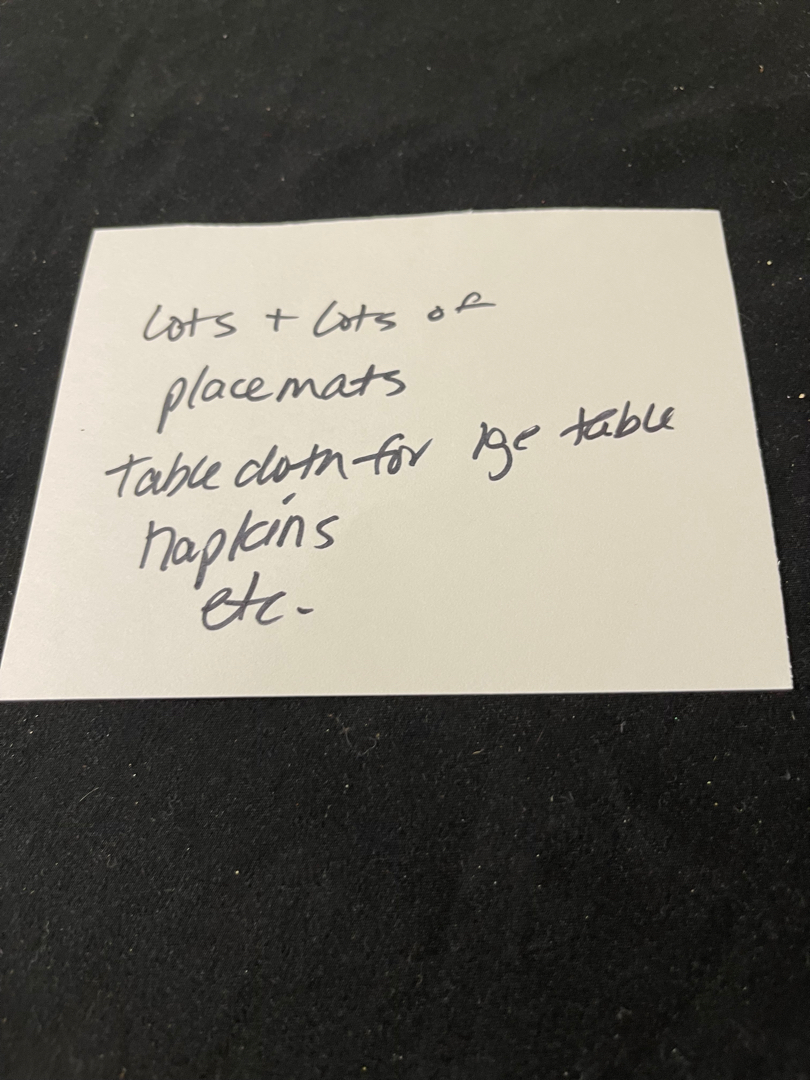 lots + lots of
placemats
table cloth for lge table
napkins
etc.